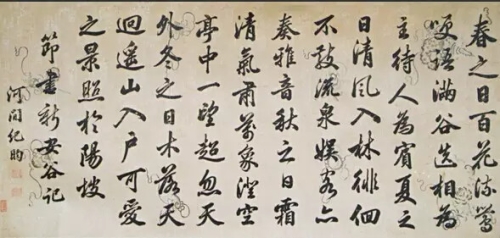 春之日百花流鶯
語滿谷迭相為
主待人為賓夏之
日清風入林徘徊
不散流泉娛客亦
奏雅音秋之日霜
清氣肅萬象澄空
亭中一望超忽天
外冬之日木落天
迥遙山入戶可愛
之景照於陽坡
節書新安谷記
河間紀昀